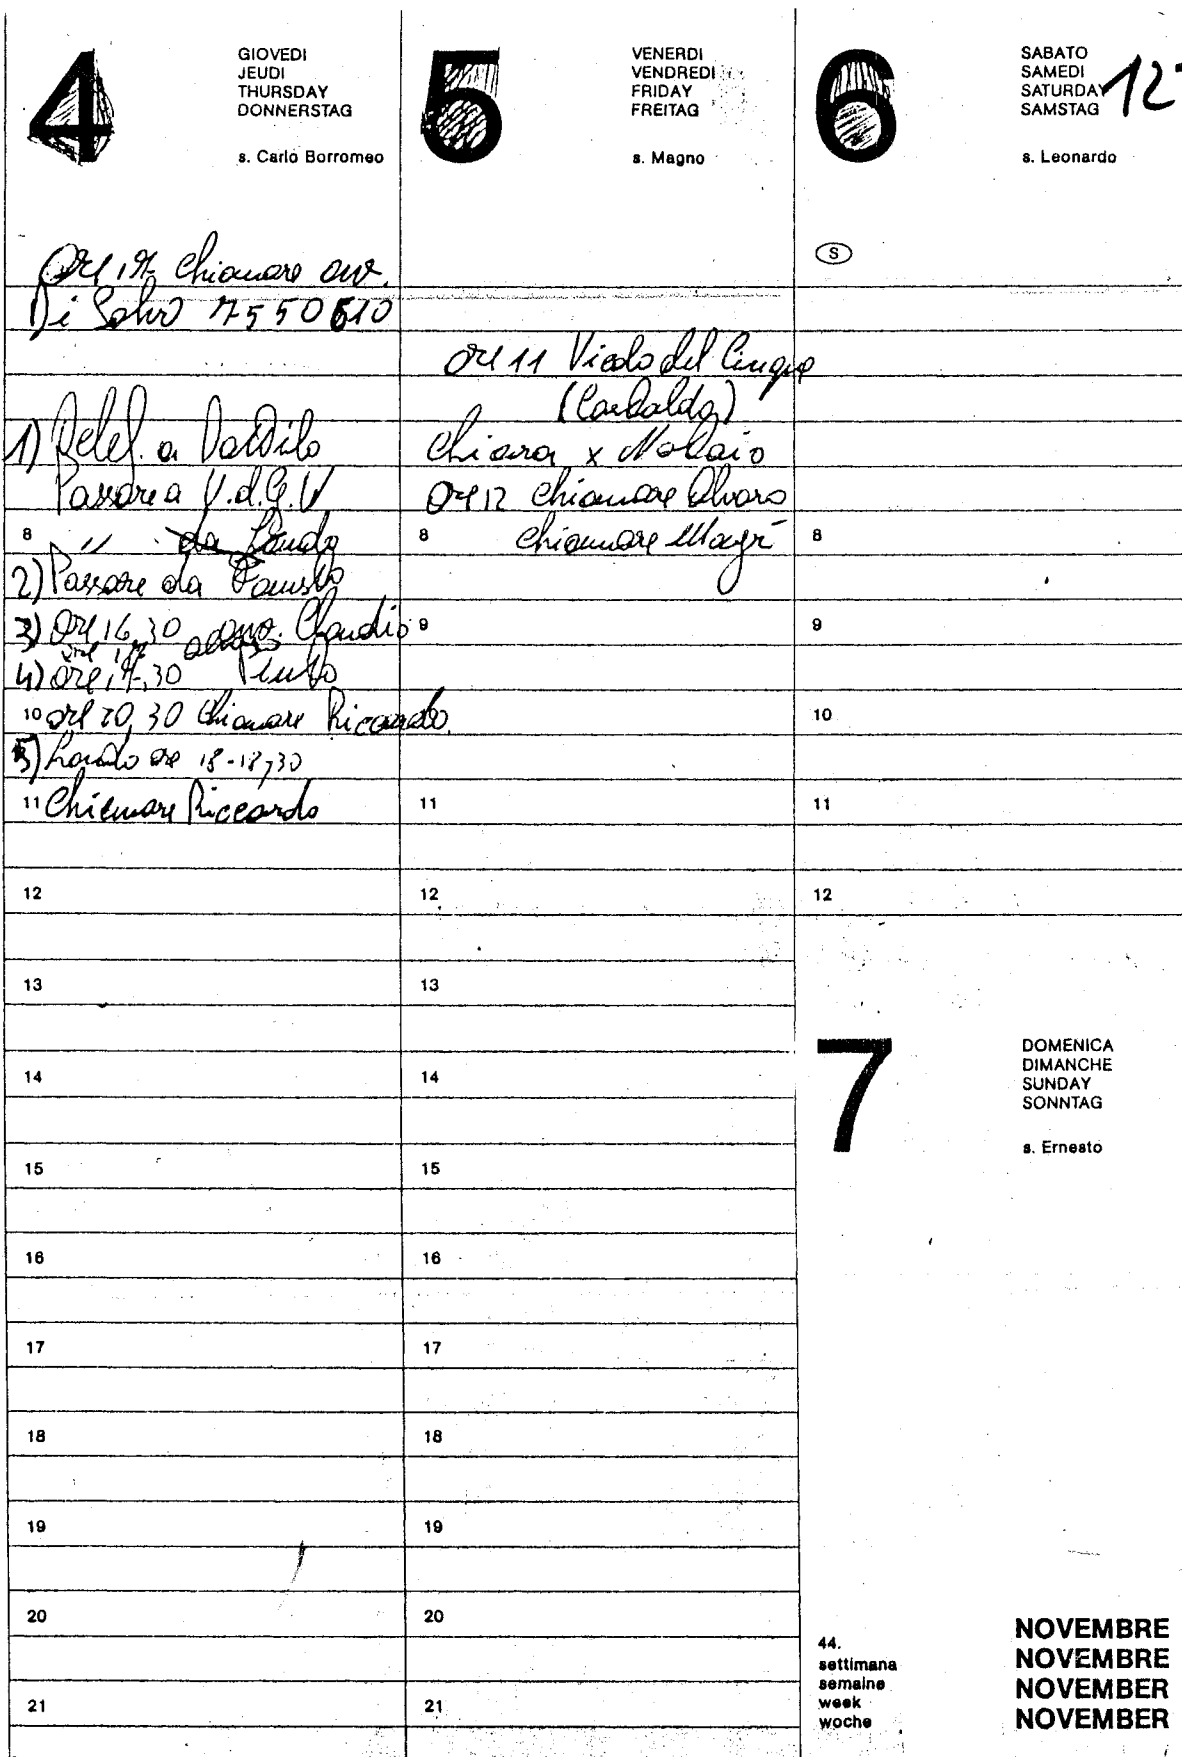 4
GIOVEDI
JEUDI
THURSDAY
DONNERSTAG
s. Carlo Borromeo
Ore 17 chiamare avv.
Di Salvo 7550610
1) Telef. a
Passare a V.d.G.V
8 " da
2) Passare da Fausto
3) Ore 16,30 avv. Claudio
4) ore 17,30
10 ore 20,30 chiamare Riccardo.
5) ore 18-18,30
11 Chiamare Riccardo
12
13
14
15
16
17
18
19
20
21
5
VENERDI
VENDREDI
FRIDAY
FREITAG
s. Magno
ore 11 Vicolo del Cinque
Chiara x
Ore 12 chiamare Alvaro
8 chiamare Magrì
9
10
11
12
13
14
15
16
17
18
19
20
21
6
SABATO
SAMEDI
SATURDAY
SAMSTAG
12
s. Leonardo
S
8
9
10
11
12
7
DOMENICA
DIMANCHE
SUNDAY
SONNTAG
s. Ernesto
44.
settimana
semaine
week
woche
NOVEMBRE
NOVEMBRE
NOVEMBER
NOVEMBER